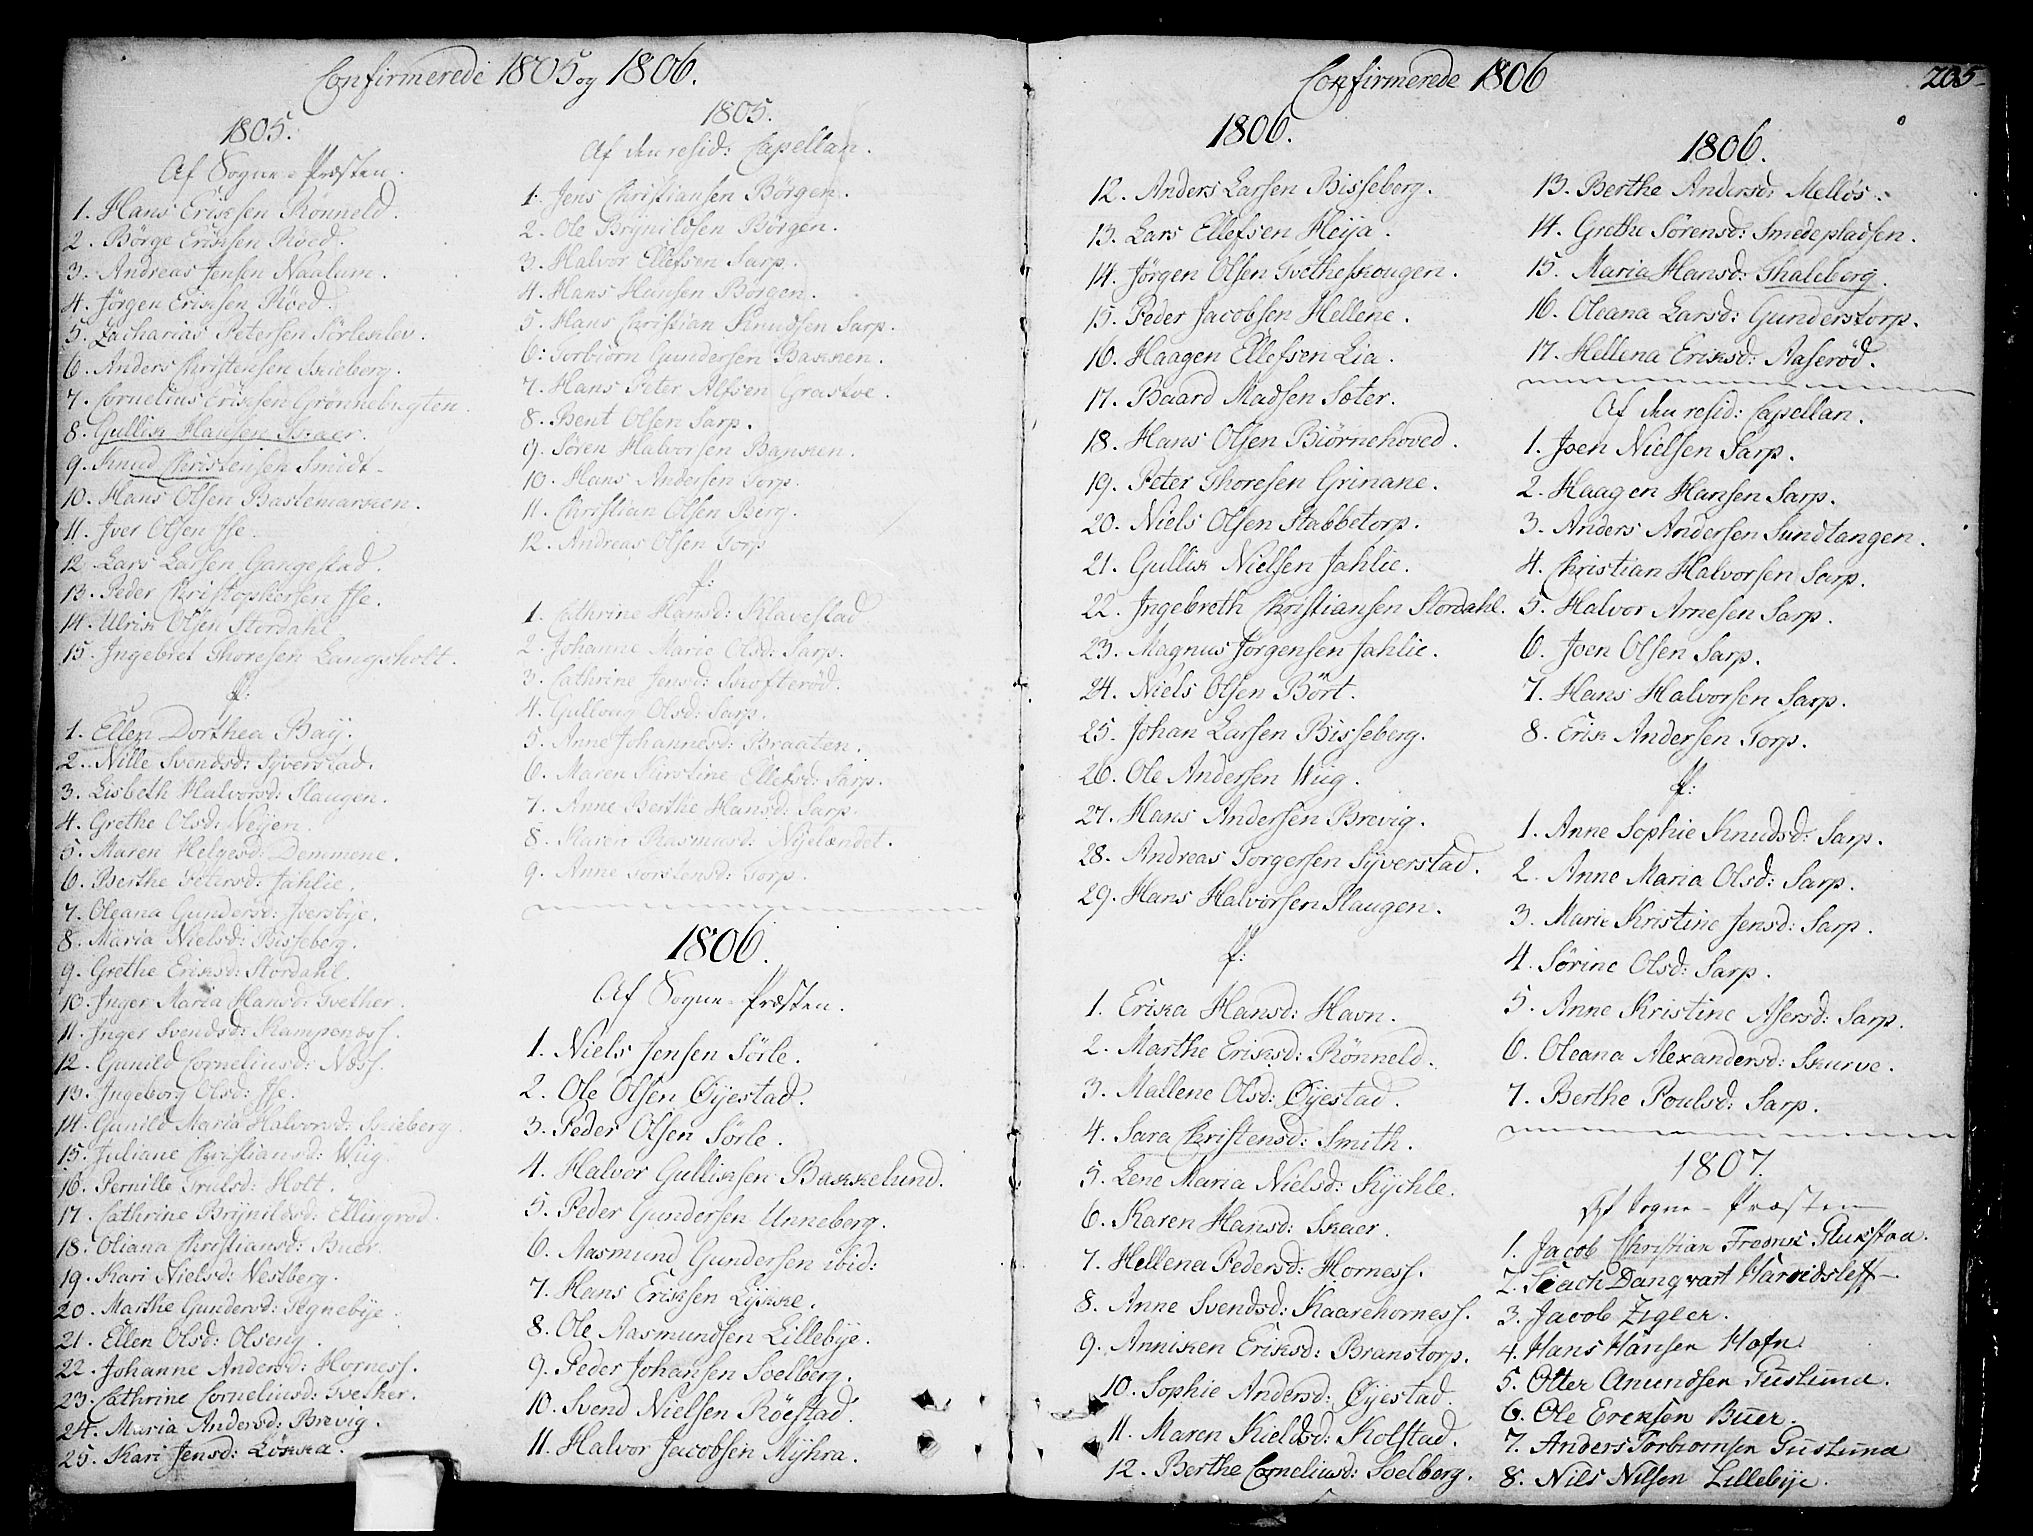 Confirmerede 1805 og 1806.
1805.
Af Sogne-Præsten.
1. Hans Eriksen Rönneld.
2. Börge Eriksen Röed.
3. Andreas Jensen Naalum.
4. Jörgen Eriksen Röed.
5. Zacharias Petersen Sörleklev.
6. Anders Christensen Skieberg.
7. Cornelius Eriksen Grönnebugten.
8. Gullik Hansen Skaer.
9. Knud Christensen Smidt.
10. Hans Olsen Bastemarken.
11. Iver Olsen Ise.
12. Lars Larsen Gangestad.
13. Peder Christophersen Ise.
14. Ulrik Olsen Stordahl
15. Ingebret Thoresen Langsholt.
f:
1. Ellen Dorthea Baÿ.
2. Nille Svendsd: Sÿverstad.
3. Lisbeth Halvorsd: Haugen.
4. Grethe Olsd: Veÿen.
5. Maren Helgesd: Demmene.
6. Berthe Petersd: Jahlie.
7. Oleana Gundersd: Iversbÿe.
8. Maria Nielsd: Bisseberg.
9. Grethe Eriksd: Stordahl.
10. Inger Maria Hansd: Tvether.
11. Inger Svendsd: Kampenæss.
12. Gunild Corneliusd: Næss.
13. Ingeborg Olsd: Ise.
14. Gunild Maria Halvorsd: Skieberg.
15. Juliane Christiansd: Wiig.
16. Pernille Trulsd: Holt.
17. Cathrine Brÿnildsd: Ellingröd.
18. Oliana Christiansd: Buer.
19. Kari Nielsd: Vestberg.
20. Marthe Gundersd: Tegnebÿe.
21. Ellen Olsd: Olseng.
22. Johanne Andersd: Horness.
23. Cathrine Corneliusd: Tvether.
24. Maria Andersd: Brevig.
25. Kari Jensd: Lökka.
1805.
Af den resid: Capellan.
1. Jens Christiansen Börgen.
2. Ole Brÿnildsen Börgen.
3. Halvor Ellefsen Sarp.
4. Hans Hansen Börgen.
5. Hans Christian Knudsen Sarp.
6. Torbiörn Gundersen Bakken.
7. Hans Peter Alfsen Grastve.
8. Bent Olsen Sarp.
9. Sören Halvorsen Bakken.
10. Hans Andersen Torp.
11. Christian Olsen Berg.
12. Andreas Olsen Torp
f:
1. Cathrine Hansd: Klavestad
2. Johanne Marie Olsd: Sarp.
3. Cathrine Jensd: Skofteröd.
4. Gullvaug Olsd: Sarp.
5. Anne Johannesd: Braaten.
6. Maren Kirstine Ellefsd: Sarp.
7. Anne Berthe Hansd: Sarp.
8. Karen Rasmusd: Nÿelændet.
9. Anne Torstensd: Torp.
1806.
Af Sogne-Præsten.
1. Niels Jensen Sörle.
2. Ole Olsen Öÿestad.
3. Peder Olsen Sörle.
4. Halvor Gulliksen Bakkelund.
5. Peder Gundersen Unneberg.
6. Aasmund Gundersen ibid:
7. Hans Eriksen Lÿkke.
8. Ole Aasmundsen Lillebÿe.
9. Peder Johansen Soelberg.
10. Svend Nielsen Röestad.
11. Halvor Jacobsen Mÿhra.
Confirmerede 1806
205
1806.
12. Anders Larsen Bisseberg.
13. Lars Ellefsen Heija.
14. Jörgen Olsen Tvetheskougen.
15. Peder Jacobsen Hellene.
16. Haagen Ellefsen Lia.
17. Baard Madsen Sæter.
18. Hans Olsen Biörnehoved.
19. Peter Thoresen Grinane.
20. Niels Olsen Stabbetorp.
21. Gullik Nielsen Jahlie.
22. Ingebreth Christiansen Stordahl.
23. Magnus Jörgensen Jahlie.
24. Niels Olsen Bört.
25. Johan Larsen Bisseberg.
26. Ole Andersen Wiig.
27. Hans Andersen Brevig.
28. Andreas Torgersen Sÿverstad.
29. Hans Halvorsen Haugen.
f:
1. Erika Hansd: Havn.
2. Marthe Eriksd: Rönneld.
3. Mallene Olsd: Öÿestad.
4. Sara Christensd: Smith.
5. Lene Maria Nielsd: Kÿchle.
6. Karen Hansd: Skaer.
7. Hellena Pedersd: Horness.
8. Anne Svendsd: Kaarehorness.
9. Anniken Eriksd: Branstorp.
10. Sophie Andersd: Öÿestad.
11. Maren Kieldsd: Kolstad.
12. Berthe Corneliusd: Soelberg.
1806.
13. Berthe Andersd: Mellös.
14. Grethe Sörensd: Smedepladsen.
15. Maria Hansd: Thaleberg.
16. Oleana Larsd: Gunderstorp.
17. Hellena Eriksd: Aaseröd.
Af den resid: Capellan.
1. Joen Nielsen Sarp.
2. Haagen Hansen Sarp.
3. Anders Andersen Sundtangen.
4. Christian Halvorsen Sarp.
5. Halvor Arnesen Sarp.
6. Joen Olsen Sarp.
7. Hans Halvorsen Sarp.
8. Erik Andersen Torp.
f:
1. Anne Sophie Knudsd: Sarp.
2. Anne Maria Olsd: Sarp.
3. Marie Kristine Jensd: Sarp.
4. Sörine Olsd: Sarp.
5. Anne Kristine Asersd: Sarp.
6. Oleana Alexandersd: Skurve.
7. Berthe Poulsd: Sarp.
1807.
Af Sogne-Præsten
1. Jacob Christian Fredrik Glukstad.
2. Zeach Danqvart
3. Jacob Zigler.
4. Hans Hansen Hafn
5. Otter Anundsen Guslund.
6. Ole Ericksen Buer.
7. Anders Torbiornsen Guslund
8. Nils Nilsen Lillebÿe.